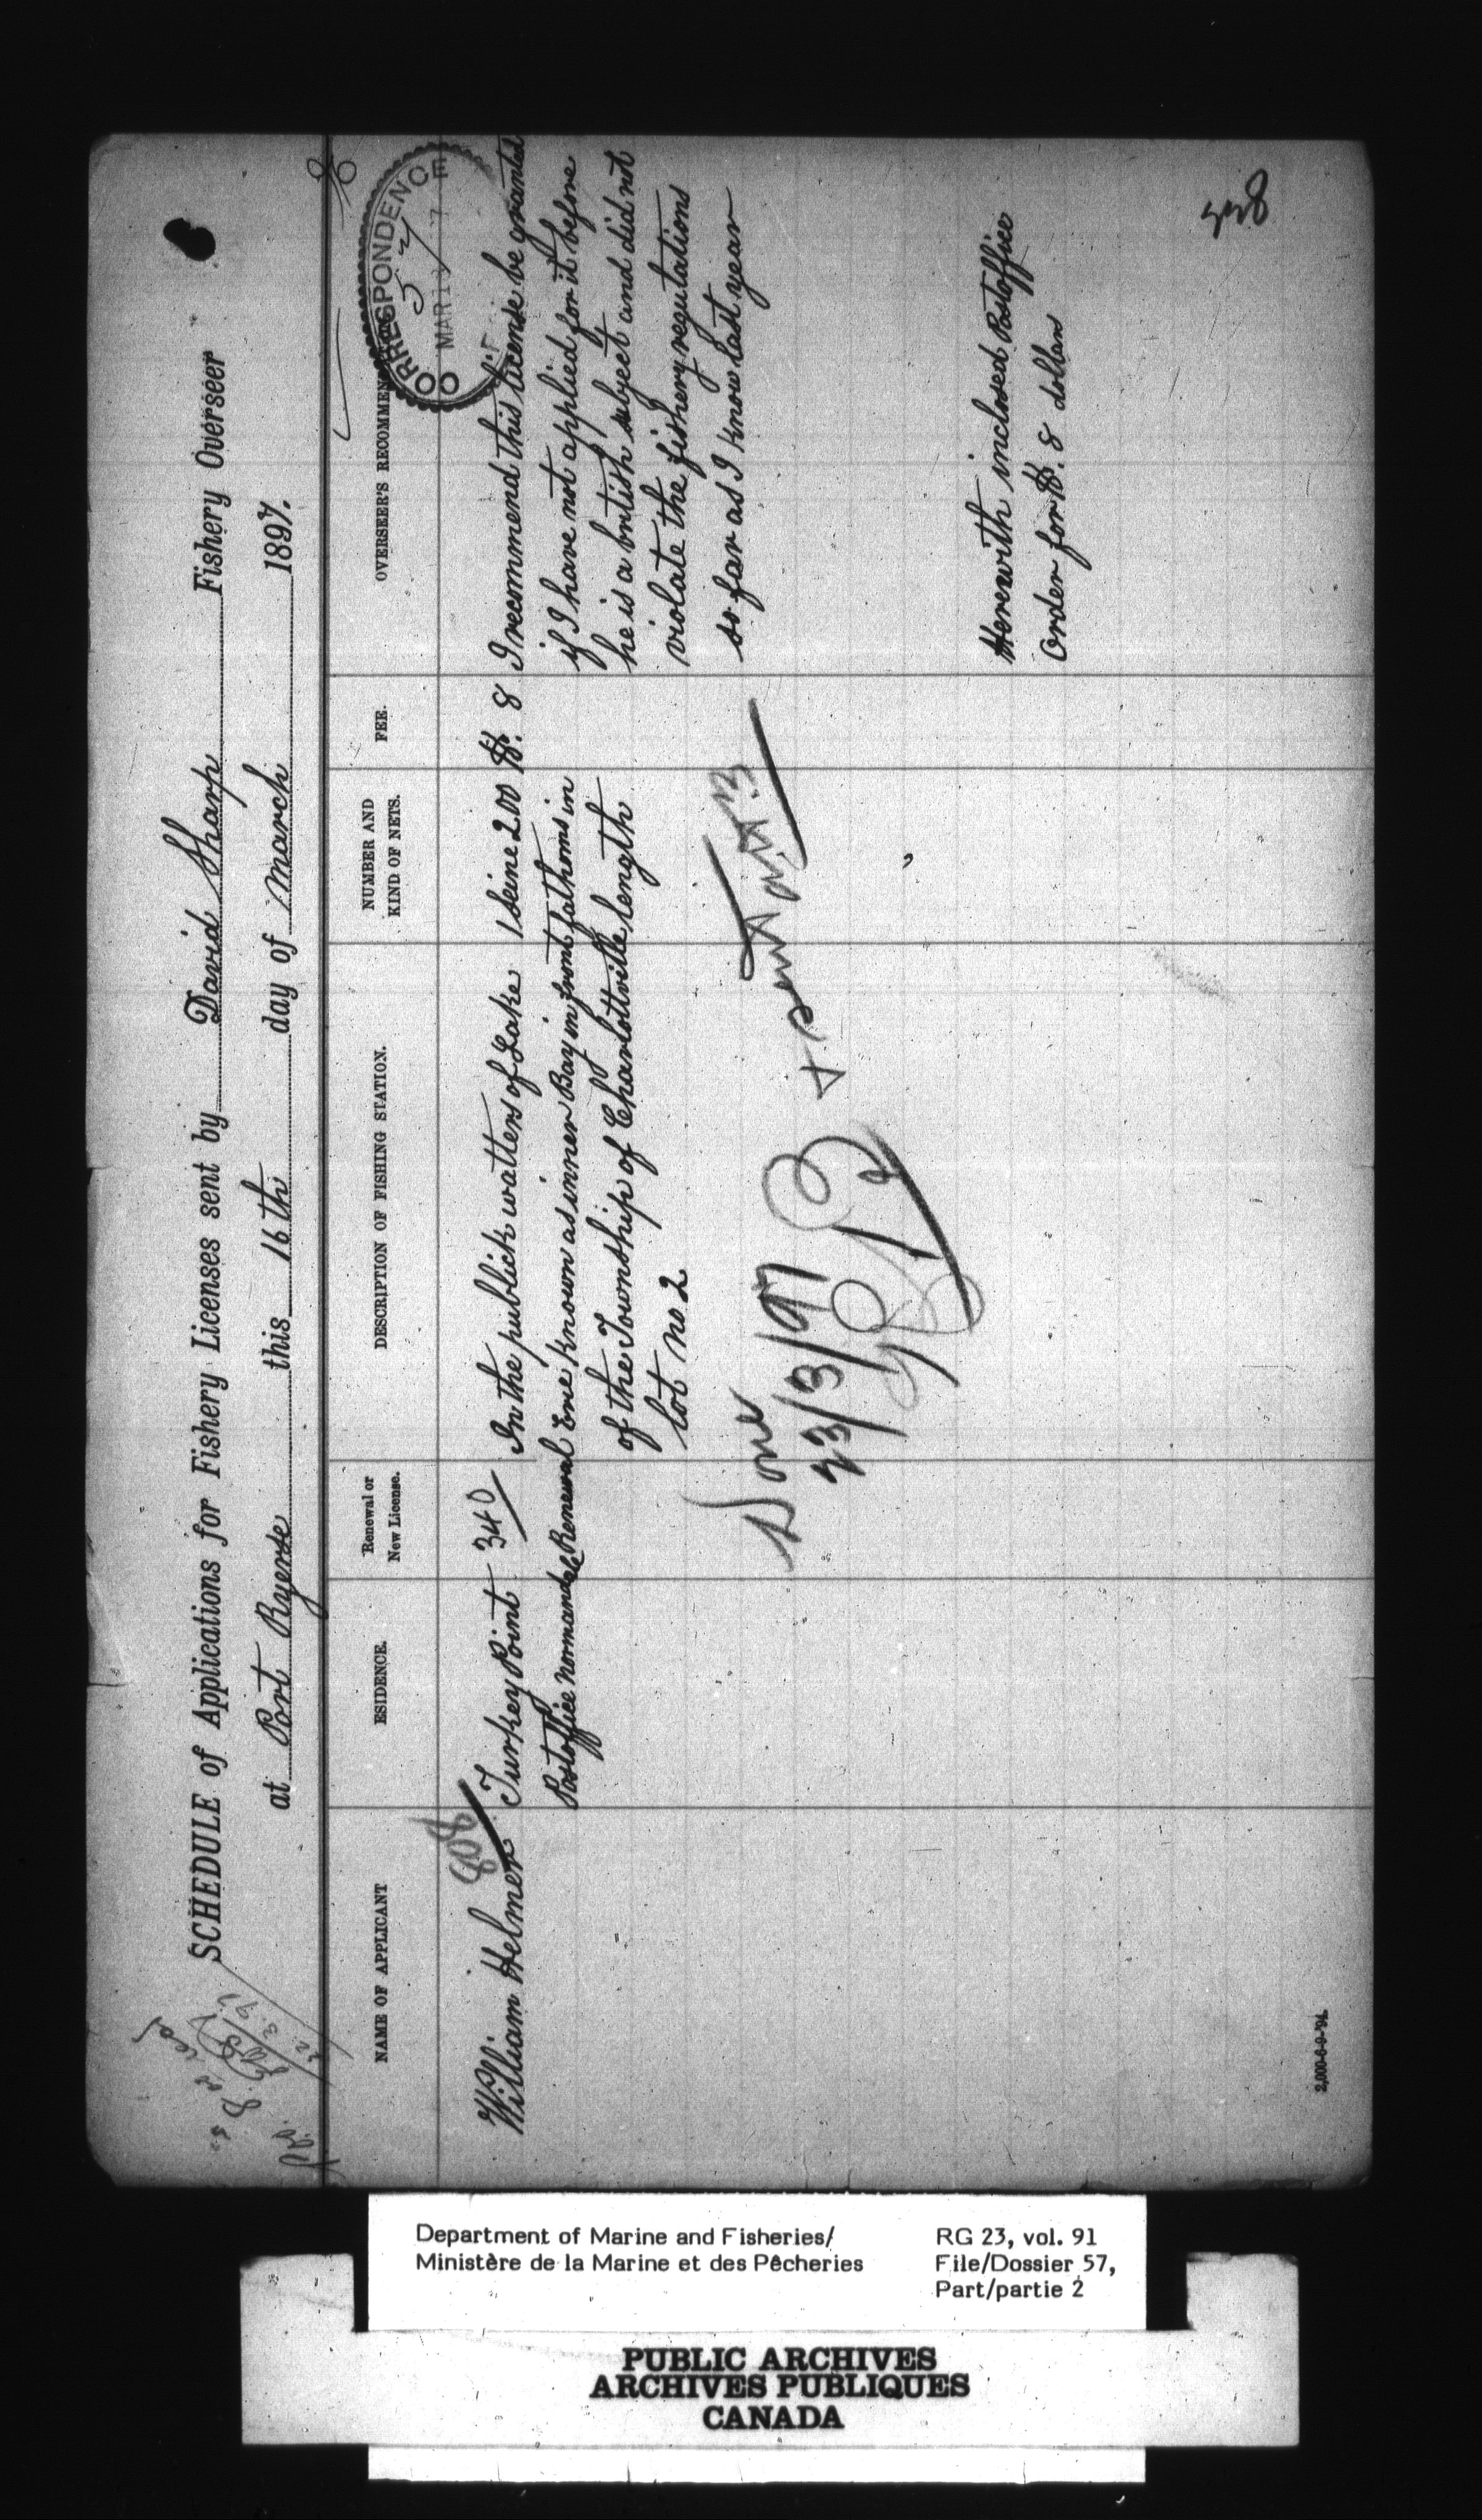 SCHEDULE of Applications for Fishery Licenses sent by David Sharp Fishery Overseer
at Port Ryerse this 16th day of March 1897.
NAME OF APPLICANT
ESIDENCE.
Renewal or
New License.
DESCRIPTION OF FISHING STATION.
NUMBER AND
KIND OF NETS.
FEE.
OVERSEER'S RECOMMEN
CORRESPONDENCE
MAR 1
William Helmer
808
Turkey Point
Postoffice Normandale
340
Renewal
In the publick watters of Lake
Erie known as inner Bay in front
of the Township of Charlottville
lot no 2
1 Seine 200
fathoms in
length
$. 8
I recommend this license be granted
if I have not applied for it before
he is a british subject and did not
violate the fishery regutations
so far as I know last year
Done
23/3/97
Herewith inclosed Postoffice
Order for $. 8 dollars
228
2,000-6-9-'94.
Department of Marine and Fisheries/
Ministère de la Marine et des Pêcheries
RG 23, vol. 91
File/Dossier 57,
Part/partie 2
PUBLIC ARCHIVES
ARCHIVES PUBLIQUES
CANADA